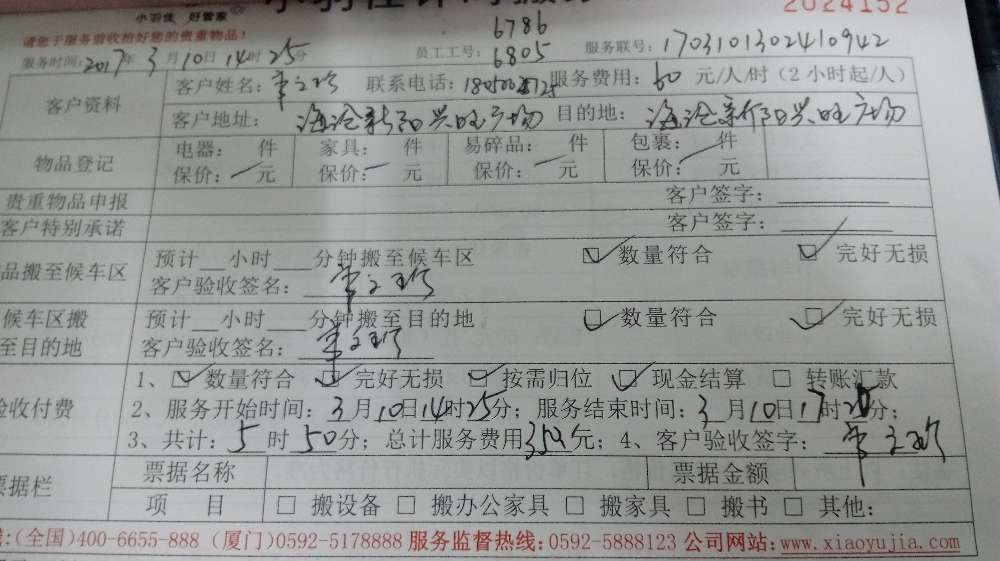 小羽佳 好管家
2024152
请您于服务前收拾好您的贵重物品!
服务时间: 2017年 3月10日14时25分 员工工号: 6786 6805 服务联号: 1703101302410942
客户资料 客户姓名: 联系电话: 服务费用: 60 元/人/时(2小时起/人)
客户地址: 海沧新阳兴旺广场 目的地: 海沧新阳兴旺广场
物品登记 电器: 件 家具: 件 易碎品: 件 包裹: 件
保价: 元 保价: 元 保价: 元 保价: 元
贵重物品申报 客户签字:
客户特别承诺 客户签字:
品搬至候车区 预计__小时___分钟搬至候车区 ☑数量符合 ☑完好无损
客户验收签名:
候车区搬至目的地 预计__小时___分钟搬至目的地 ☑数量符合 ☑完好无损
客户验收签名:
验收付费 1、☑数量符合 ☑完好无损 ☑按需归位 ☑现金结算 □转账汇款
2、服务开始时间: 3月10日14时25分; 服务结束时间: 3月10日17时分;
3、共计: 5时50分; 总计服务费用元; 4、客户验收签字:
票据栏 票据名称 票据金额
项 目 □搬设备 □搬办公家具 □搬家具 □搬书 □其他:
(全国)400-6655-888 (厦门)0592-5178888 服务监督热线:0592-5888123 公司网站:www.xiaoyujia.com